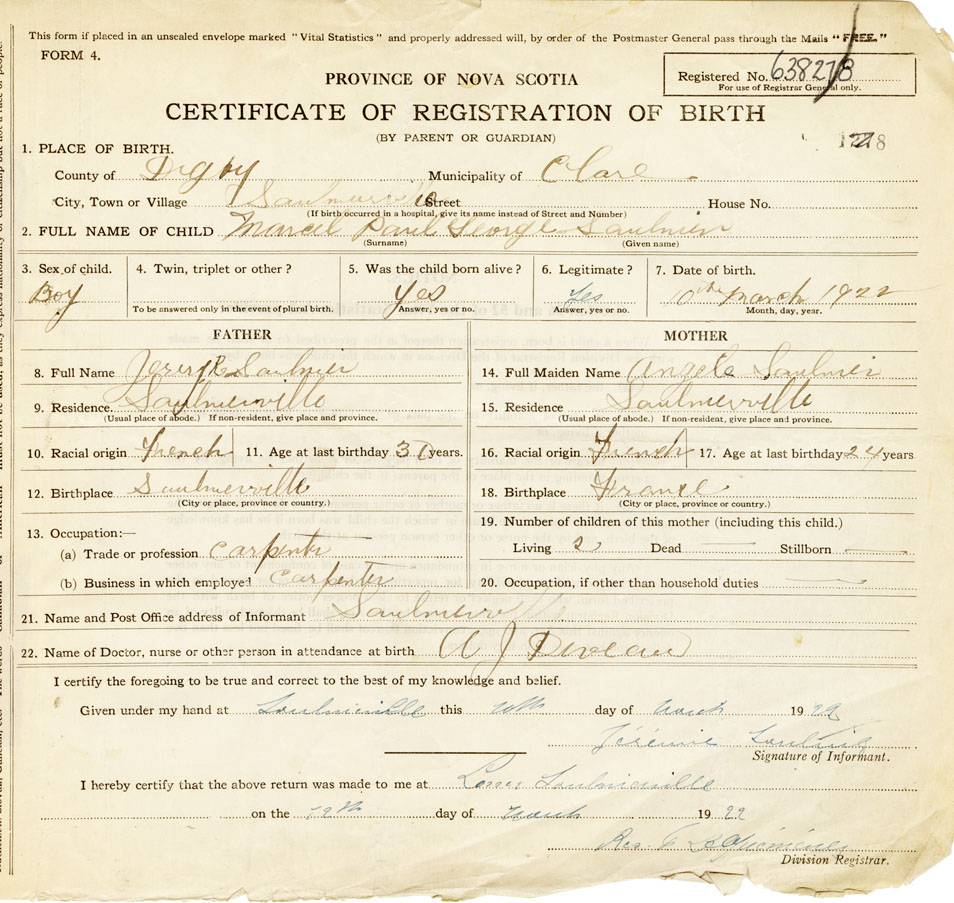 This form if placed in an unsealed envelope marked "Vital Statistics" and properly addressed will, by order of the Postmaster General pass through the Mails "FREE."
FORM 4.
Registered No. 638278
For use of Registrar General only.
PROVINCE OF NOVA SCOTIA
CERTIFICATE OF REGISTRATION OF BIRTH
(BY PARENT OR GUARDIAN)
1. PLACE OF BIRTH.
County of Digby Municipality of Clare
City, Town or Village Saulnierville Street House No.
(If birth occurred in a hospital, give its name instead of Street and Number)
2. FULL NAME OF CHILD Marcel Paul George Saulnier
(Surname) (Given name)
3. Sex of child. 4. Twin, triplet or other? 5. Was the child born alive? 6. Legitimate? 7. Date of birth.
Boy Yes Yes 10th March 1922
To be answered only in the event of plural birth. Answer, yes or no. Answer, yes or no. Month, day, year.
FATHER MOTHER
8. Full Name Saulnier 14. Full Maiden Name Angele Saulnier
9. Residence. Saulnierville 15. Residence Saulnierville
(Usual place of abode.) If non-resident, give place and province. (Usual place of abode.) If non-resident, give place and province.
10. Racial origin French 11. Age at last birthday years. 16. Racial origin French 17. Age at last birthday 24 years
12. Birthplace Saulnierville 18. Birthplace France
(City or place, province or country.) (City or place, province or country.)
13. Occupation:— 19. Number of children of this mother (including this child.)
(a) Trade or profession Carpenter Living 2 Dead — Stillborn —
(b) Business in which employed Carpenter 20. Occupation, if other than household duties —
21. Name and Post Office address of Informant Saulnierville
22. Name of Doctor, nurse or other person in attendance at birth A J Deveau
I certify the foregoing to be true and correct to the best of my knowledge and belief.
Given under my hand at Saulnierville this day of March 1922
Jérémie Saulnier
Signature of Informant.
I hereby certify that the above return was made to me at Lower Saulnierville
on the day of March 1922
Division Registrar.